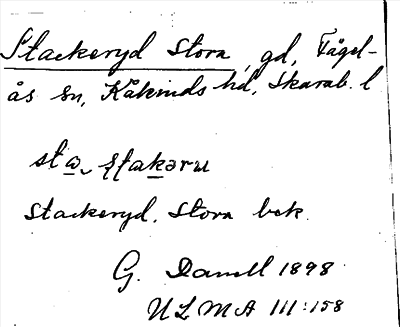 Stackeryd Stora, gd, Fågel-
ås sn, Kåkinds hd, Skarab. l
Stackeryd, Stora bek.
G. Danell 1898
ULMA 111:158